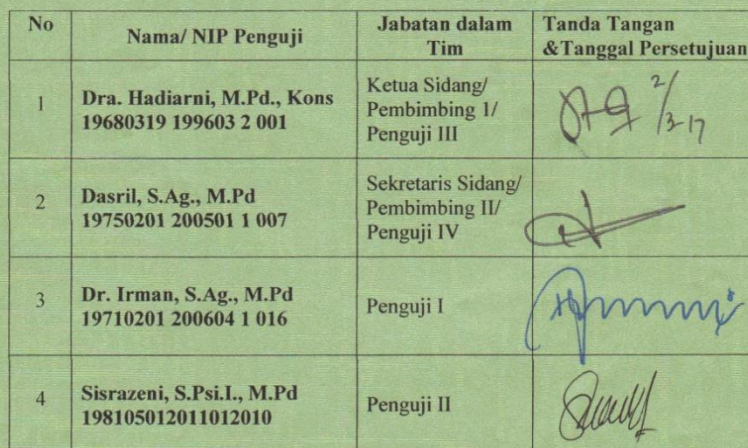 No
Nama/ NIP Penguji
Jabatan dalam
Tim
Tanda Tangan
&Tanggal Persetujuan
1
Dra. Hadiarni, M.Pd., Kons
19680319 199603 2 001
Ketua Sidang/
Pembimbing 1/
Penguji III
2/3-17
2
Dasril, S.Ag., M.Pd
19750201 200501 1 007
Sekretaris Sidang/
Pembimbing II/
Penguji IV
3
Dr. Irman, S.Ag., M.Pd
19710201 200604 1 016
Penguji I
4
Sisrazeni, S.Psi.I., M.Pd
198105012011012010
Penguji II